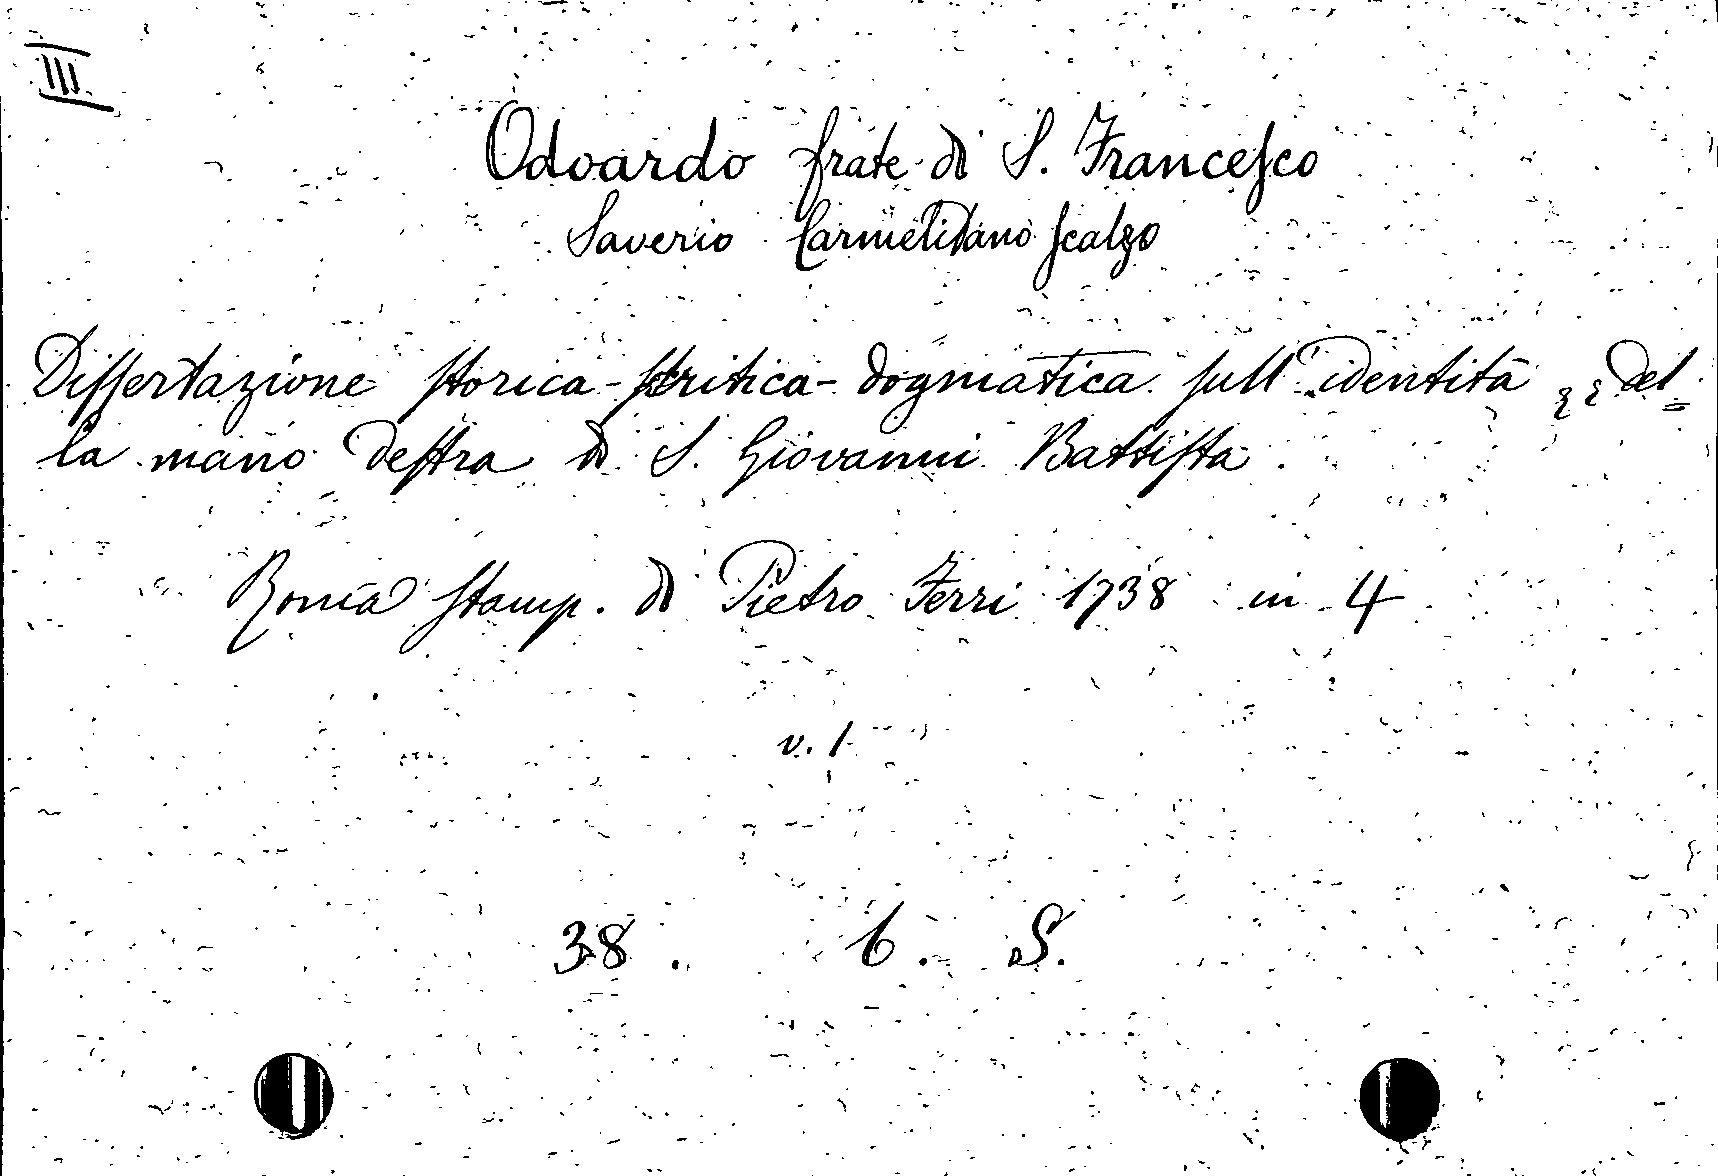 III.
Odoardo frate di S. Francesco
Saverio Carmelitano scalzo
Dissertazione storica-scritica-dogmatica sull'identità del=
la mano destra di S. Giovanni Battista.
Roma stamp. di Pietro Ferri 1738 in 4
v. 1
38. 6. S.